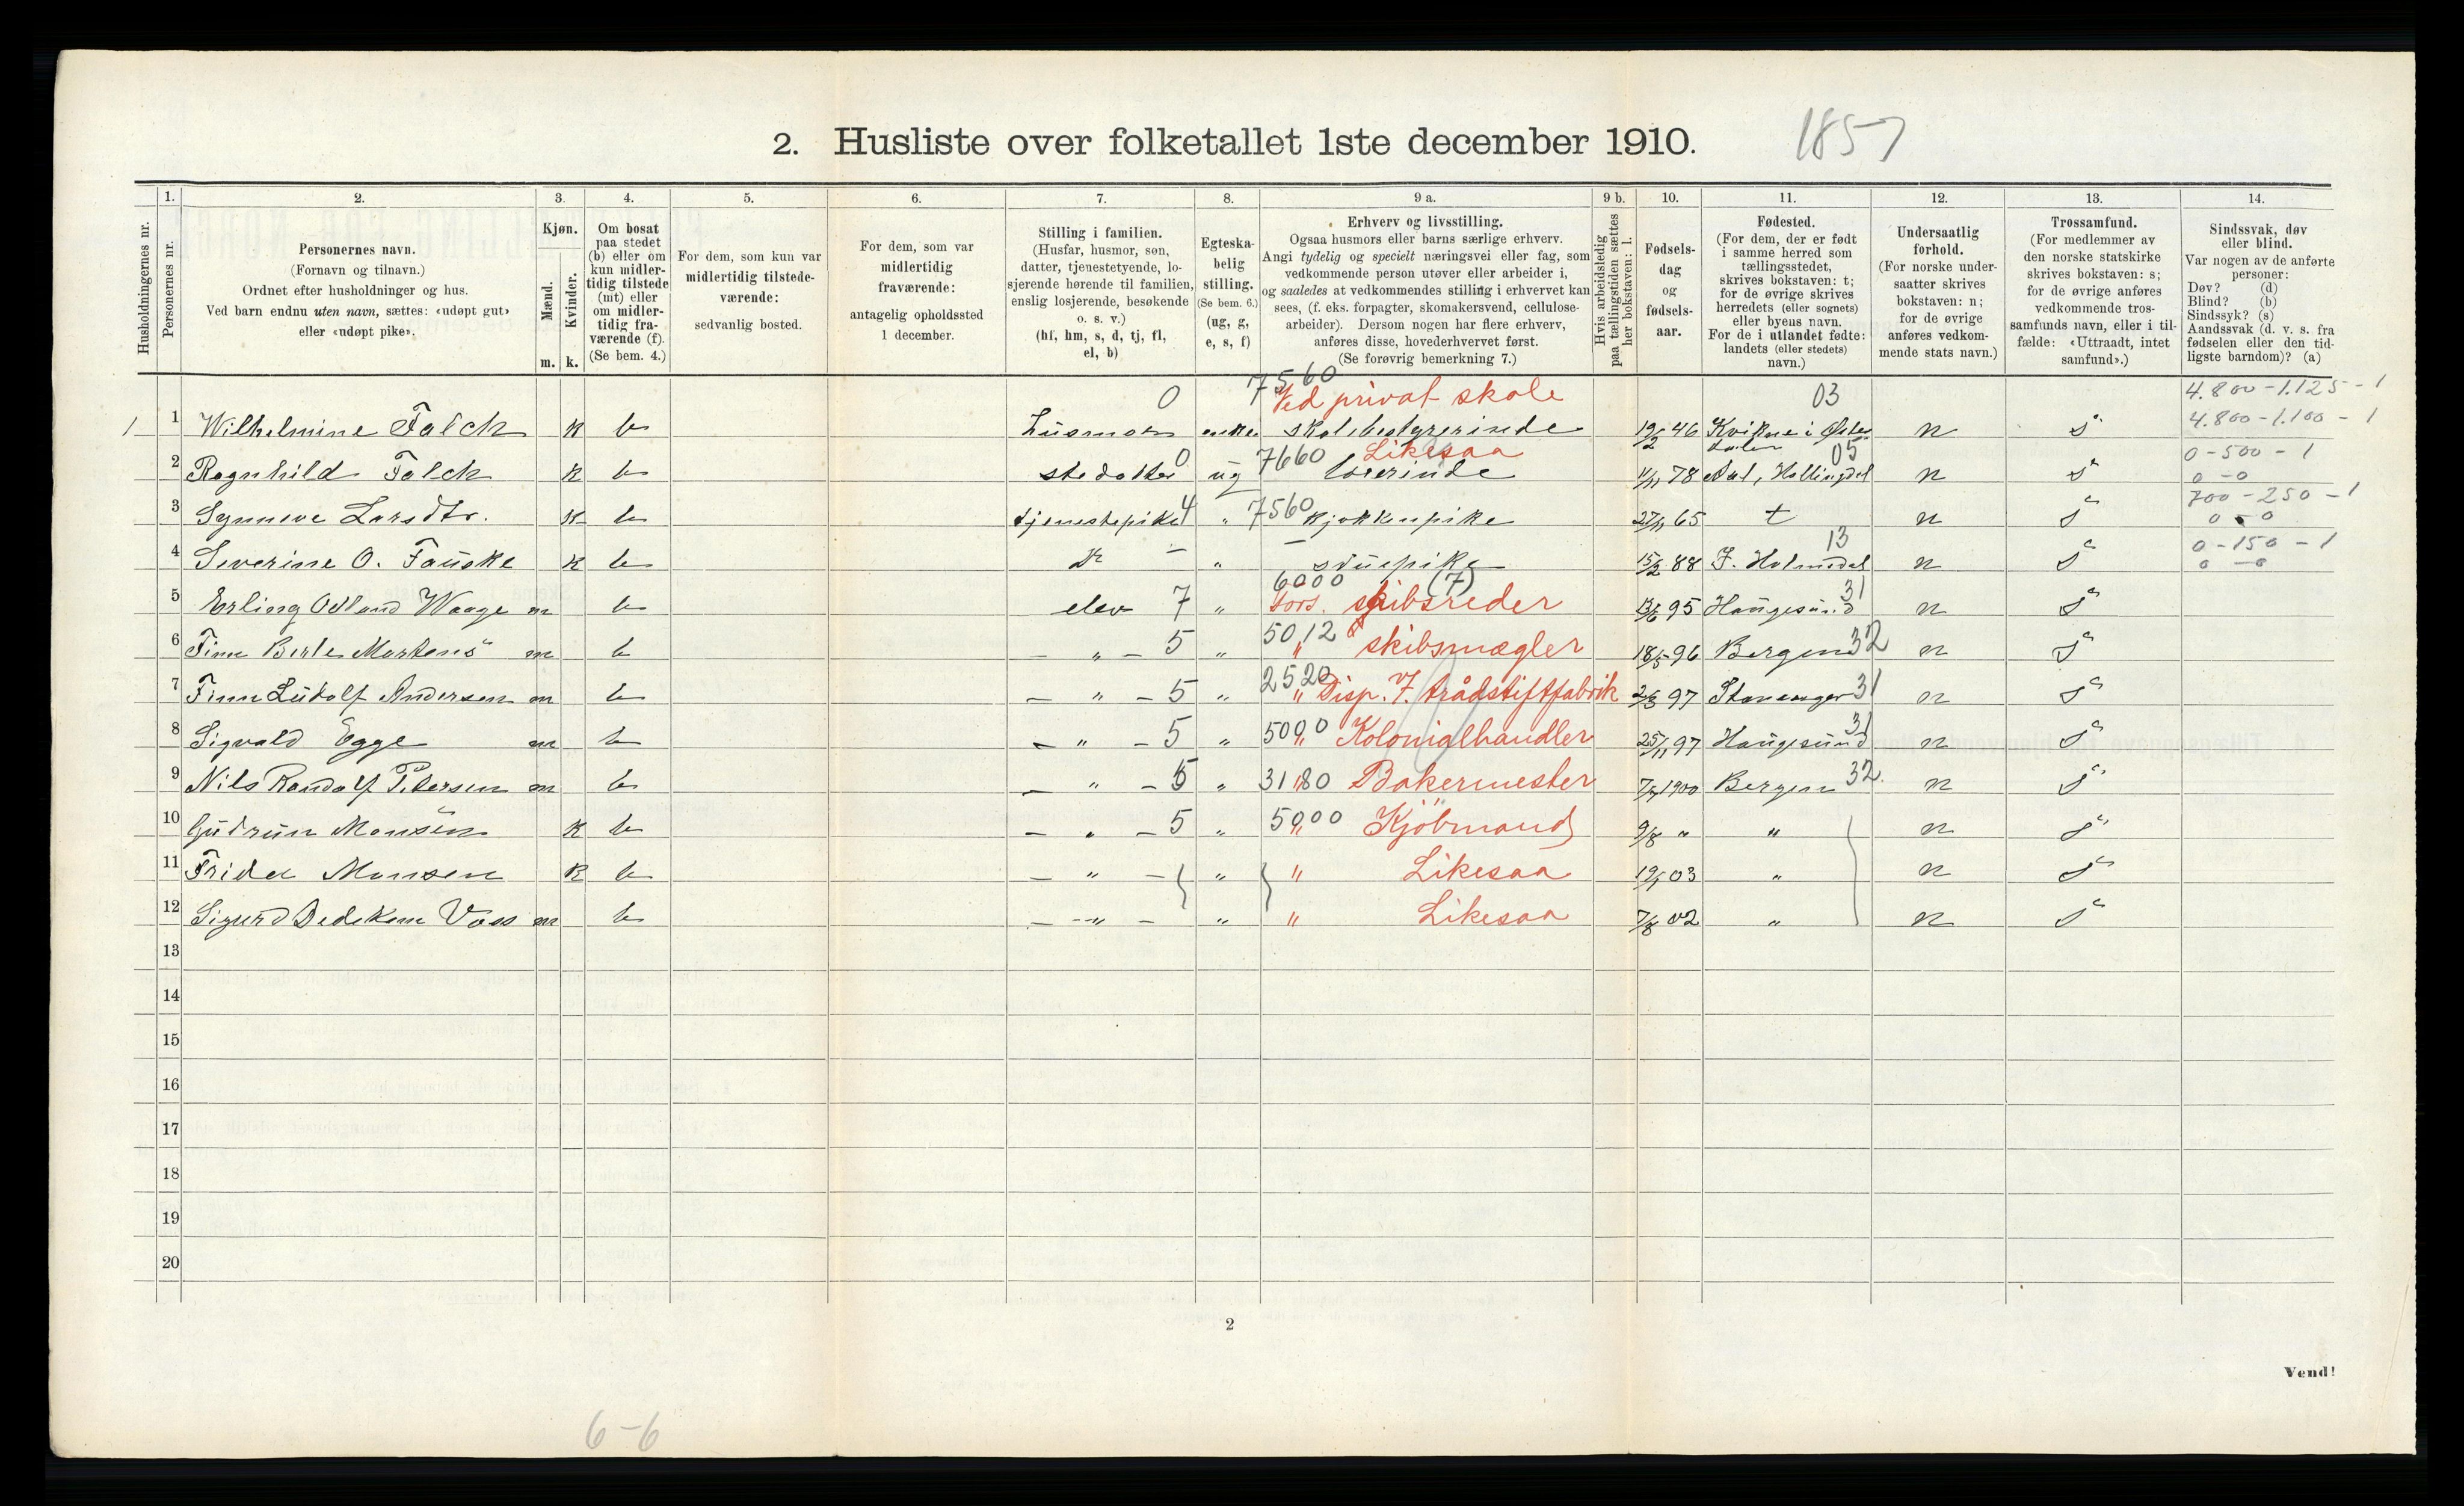 2. Husliste over folketallet 1ste december 1910.
1857
Husholdningernes nr.
1.
Personernes nr.
2.
Personernes navn.
(Fornavn og tilnavn.)
Ordnet efter husholdninger og hus.
Ved barn endnu uten navn, sættes: «udøpt gut»
eller «udøpt pike».
3.
Kjøn.
Mænd.
Kvinder.
m. k.
4.
Om bosat
paa stedet
(b) eller om
kun midler-
tidig tilstede
(mt) eller
om midler-
tidig fra-
værende (f).
(Se bem. 4.)
5.
For dem, som kun var
midlertidig tilstede-
værende:
sedvanlig bosted.
6.
For dem, som var
midlertidig
fraværende:
antagelig opholdssted
1 december.
7.
Stilling i familien.
(Husfar, husmor, søn,
datter, tjenestetyende, lo-
sjerende hørende til familien,
enslig losjerende, besøkende
o. s. v.)
(hf, hm, s, d, tj, fl,
el, b)
8.
Egteska-
belig
stilling.
(Se bem. 6.)
(ug, g,
e, s, f)
9 a.
Erhverv og livsstilling.
Ogsaa husmors eller barns særlige erhverv.
Angi tydelig og specielt næringsvei eller fag, som
vedkommende person utøver eller arbeider i,
og saaledes at vedkommendes stilling i erhvervet kan
sees, (f. eks. forpagter, skomakersvend, cellulose-
arbeider). Dersom nogen har flere erhverv,
anføres disse, hovederhvervet først.
(Se forøvrig bemerkning 7.)
9 b.
Hvis arbeidsledig
paa tællingstiden sættes
her bokstaven: l.
10.
Fødsels-
dag
og
fødsels-
aar.
11.
Fødested.
(For dem, der er født
i samme herred som
tællingsstedet,
skrives bokstaven: t;
for de øvrige skrives
herredets (eller sognets)
eller byens navn.
For de i utlandet fødte:
landets (eller stedets)
navn.)
12.
Undersaatlig
forhold.
(For norske under-
saatter skrives
bokstaven: n;
for de øvrige
anføres vedkom-
mende stats navn.)
13.
Trossamfund.
(For medlemmer av
den norske statskirke
skrives bokstaven: s;
for de øvrige anføres
vedkommende tros-
samfunds navn, eller i til-
fælde: «Uttraadt, intet
samfund».)
14.
Sindssvak, døv
eller blind.
Var nogen av de anførte
personer:
Døv? (d)
Blind? (b)
Sindssyk? (s)
Aandssvak (d. v. s. fra
fødselen eller den tid-
ligste barndom)? (a)
0 7560 Ved privat skole 03 4.800-1.125-1
1 1 Wilhelmine Falch k b Husmor enke skolebestyrerinde 19/2 46 Kvikne i Øster n s 4.800-1.100-1
0 7660 Likesaa dalen 05 0-500-1
2 Ragnhild Falch k b stedatter ug lærerinde 11/11 78 Aal, Hallingdal n s 0-0
700-250-1
3 Synneve Larsdtr. k b tjenestepike 4 " 7560 kjøkkenpike 27/11 65 t n s 0-0
13 0-150-1
4 Severine O. Fauske k b Do " stuepike 15/2 88 F. Holmedal n s 0-0
6000 (7) 31
5 Erling Odland Waage m b elev 7 " Fors. skibsreder 13/6 95 Haugesund n s
6 Finn Berle Martens m b — " — 5 " 5012 " skibsmægler 18/5 96 Bergen 32 n s
7 Finn Ludolf Andersen m b — " — 5 " 2520 " Disp. f. trådstiftfabrik 2/3 97 Stavanger 31 n s
8 Sigvald Egge m b — " — 5 " 5000 " Kolonialhandler 25/11 97 Haugesund 31 n s
9 Nils Randolf Petersen m b — " — 5 " 3180 " Bakermester 7/7 1900 Bergen 32 n s
10 Gudrun Monsen k b — " — 5 " 5000 " Kjöbmand 9/8 " " n s
11 Frida Monsen k b — " — " " Likesaa 19/1 03 " n s
12 Sigurd Bedeken Voss m b — " — " " Likesaa 7/8 02 " n s
13
14
15
16
17
18
19
20
2
Vend!
6-6